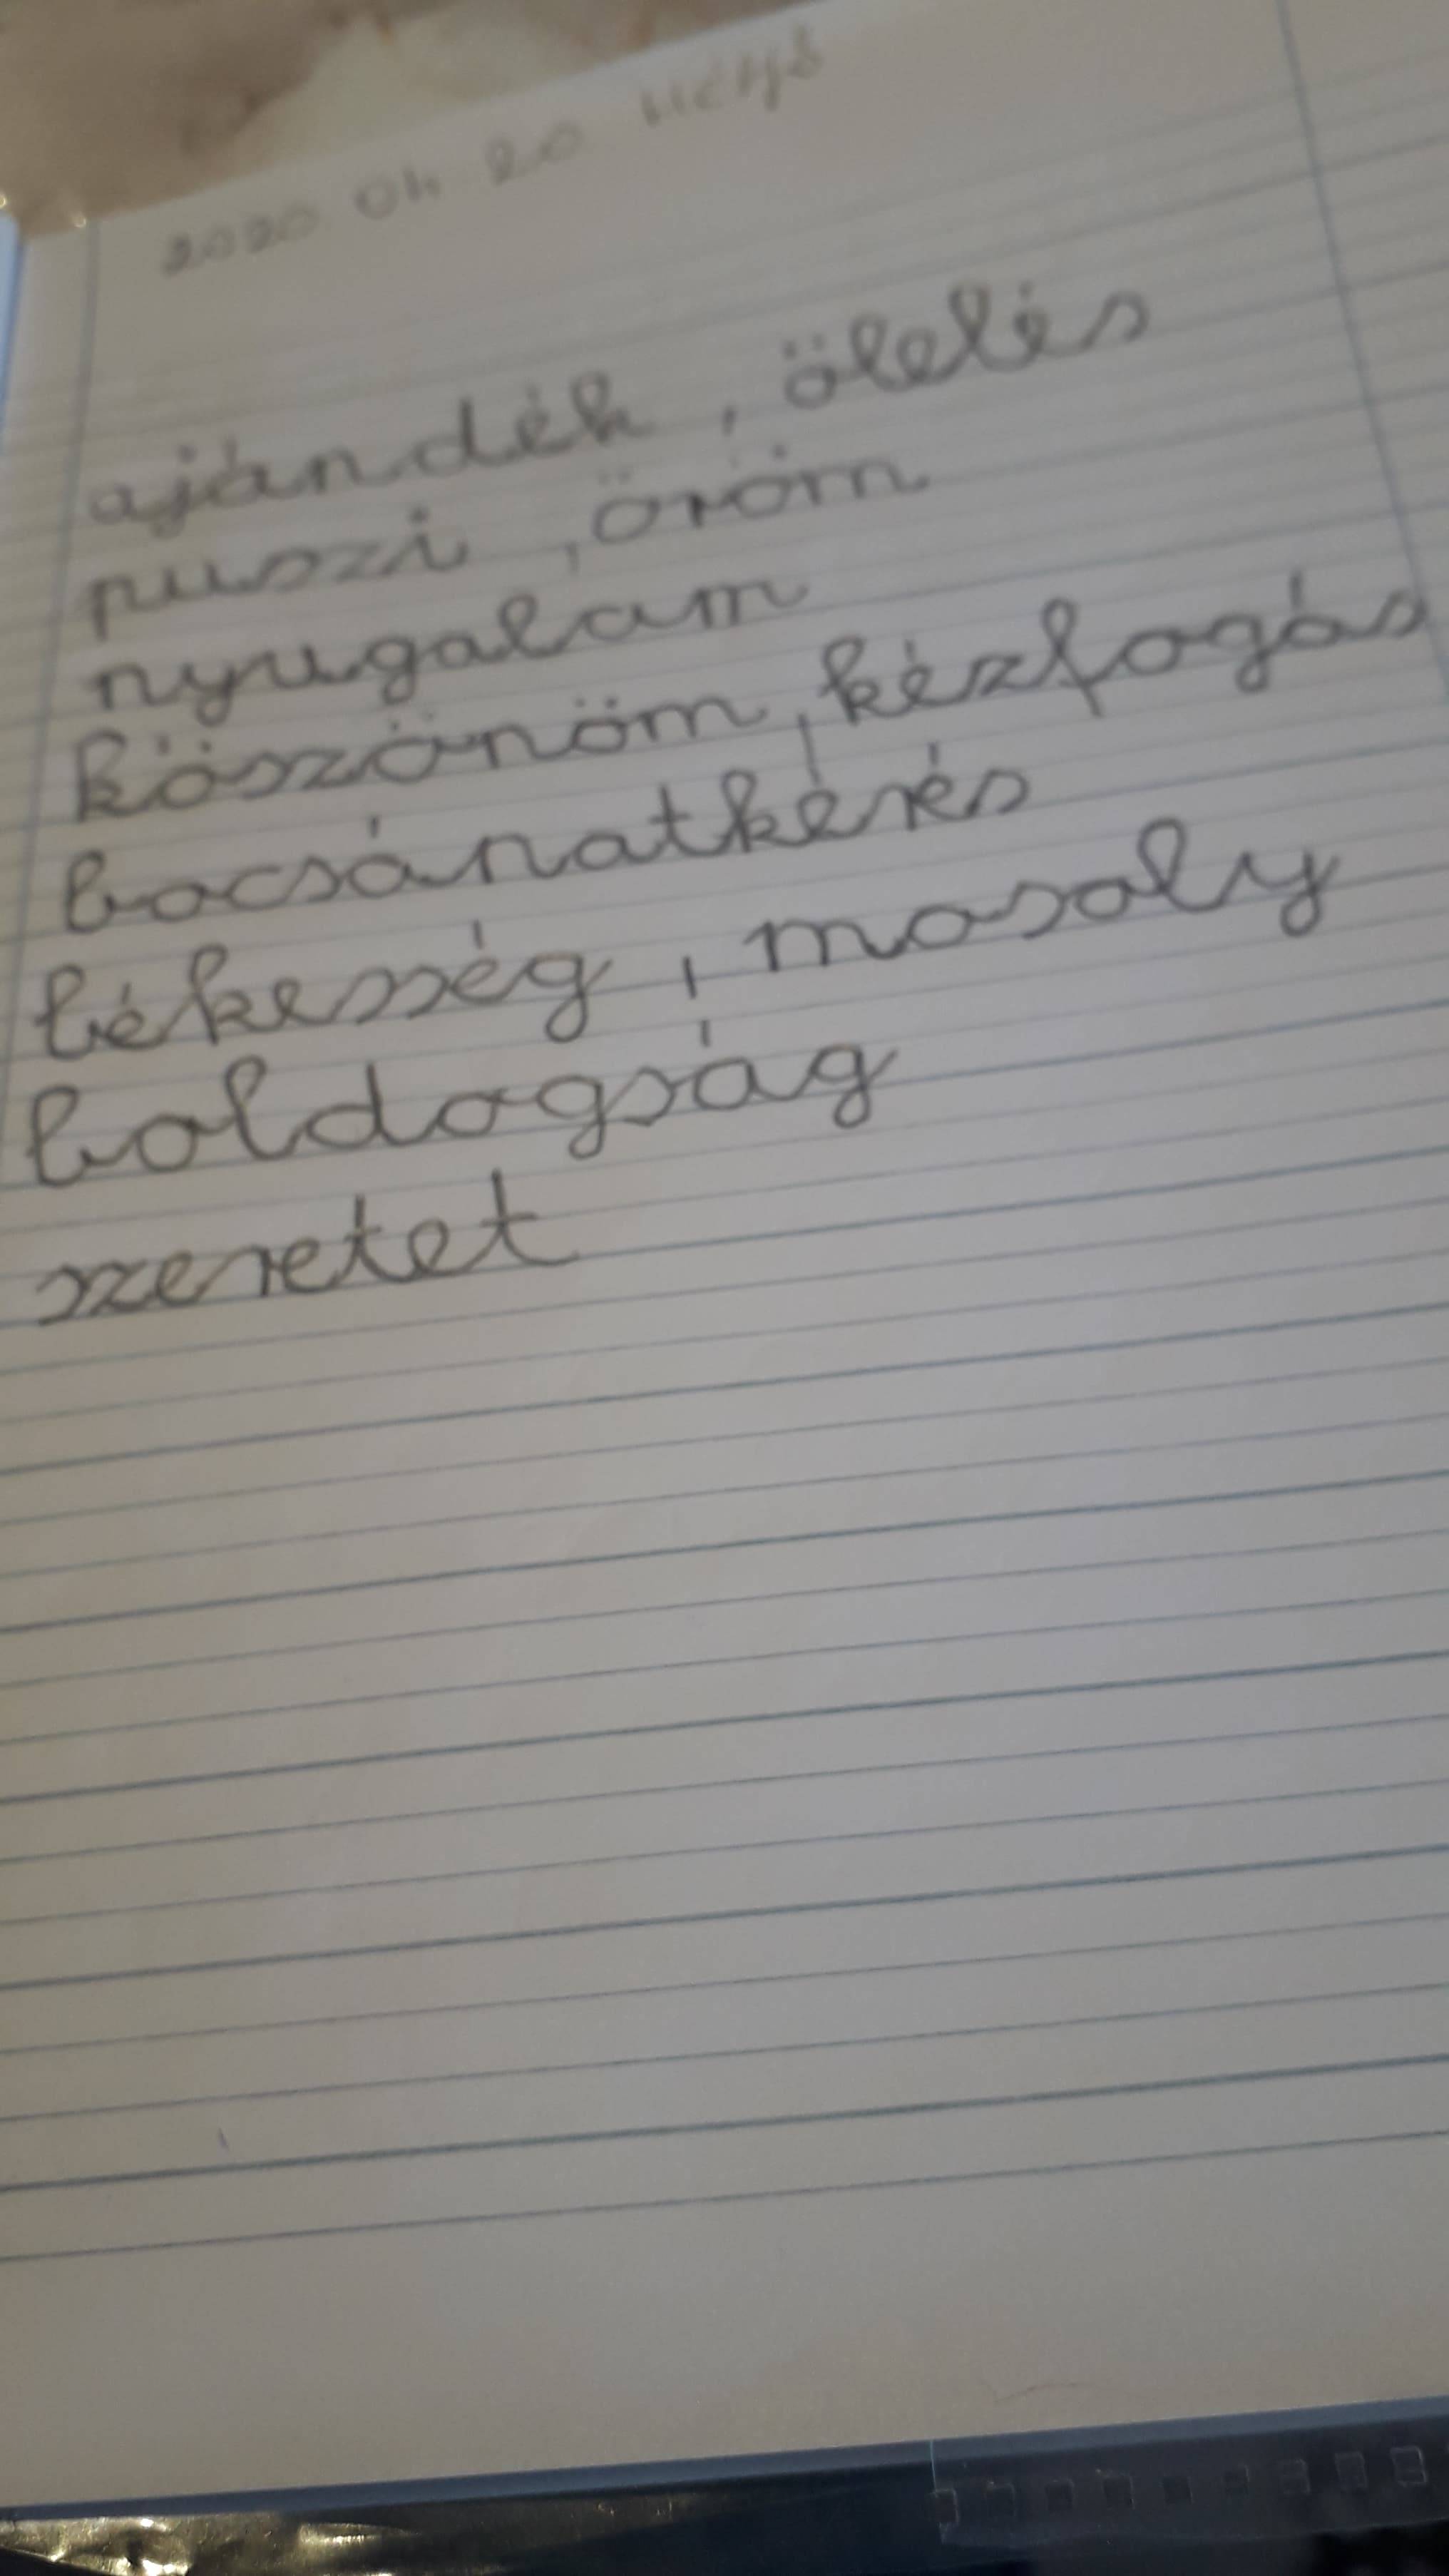 2020 04 20
ajándék, ölelés
puszi, öröm
nyugalam
köszönöm, kézfogás
bocsánatkérés
békesség, mosoly
boldogság
szeretet